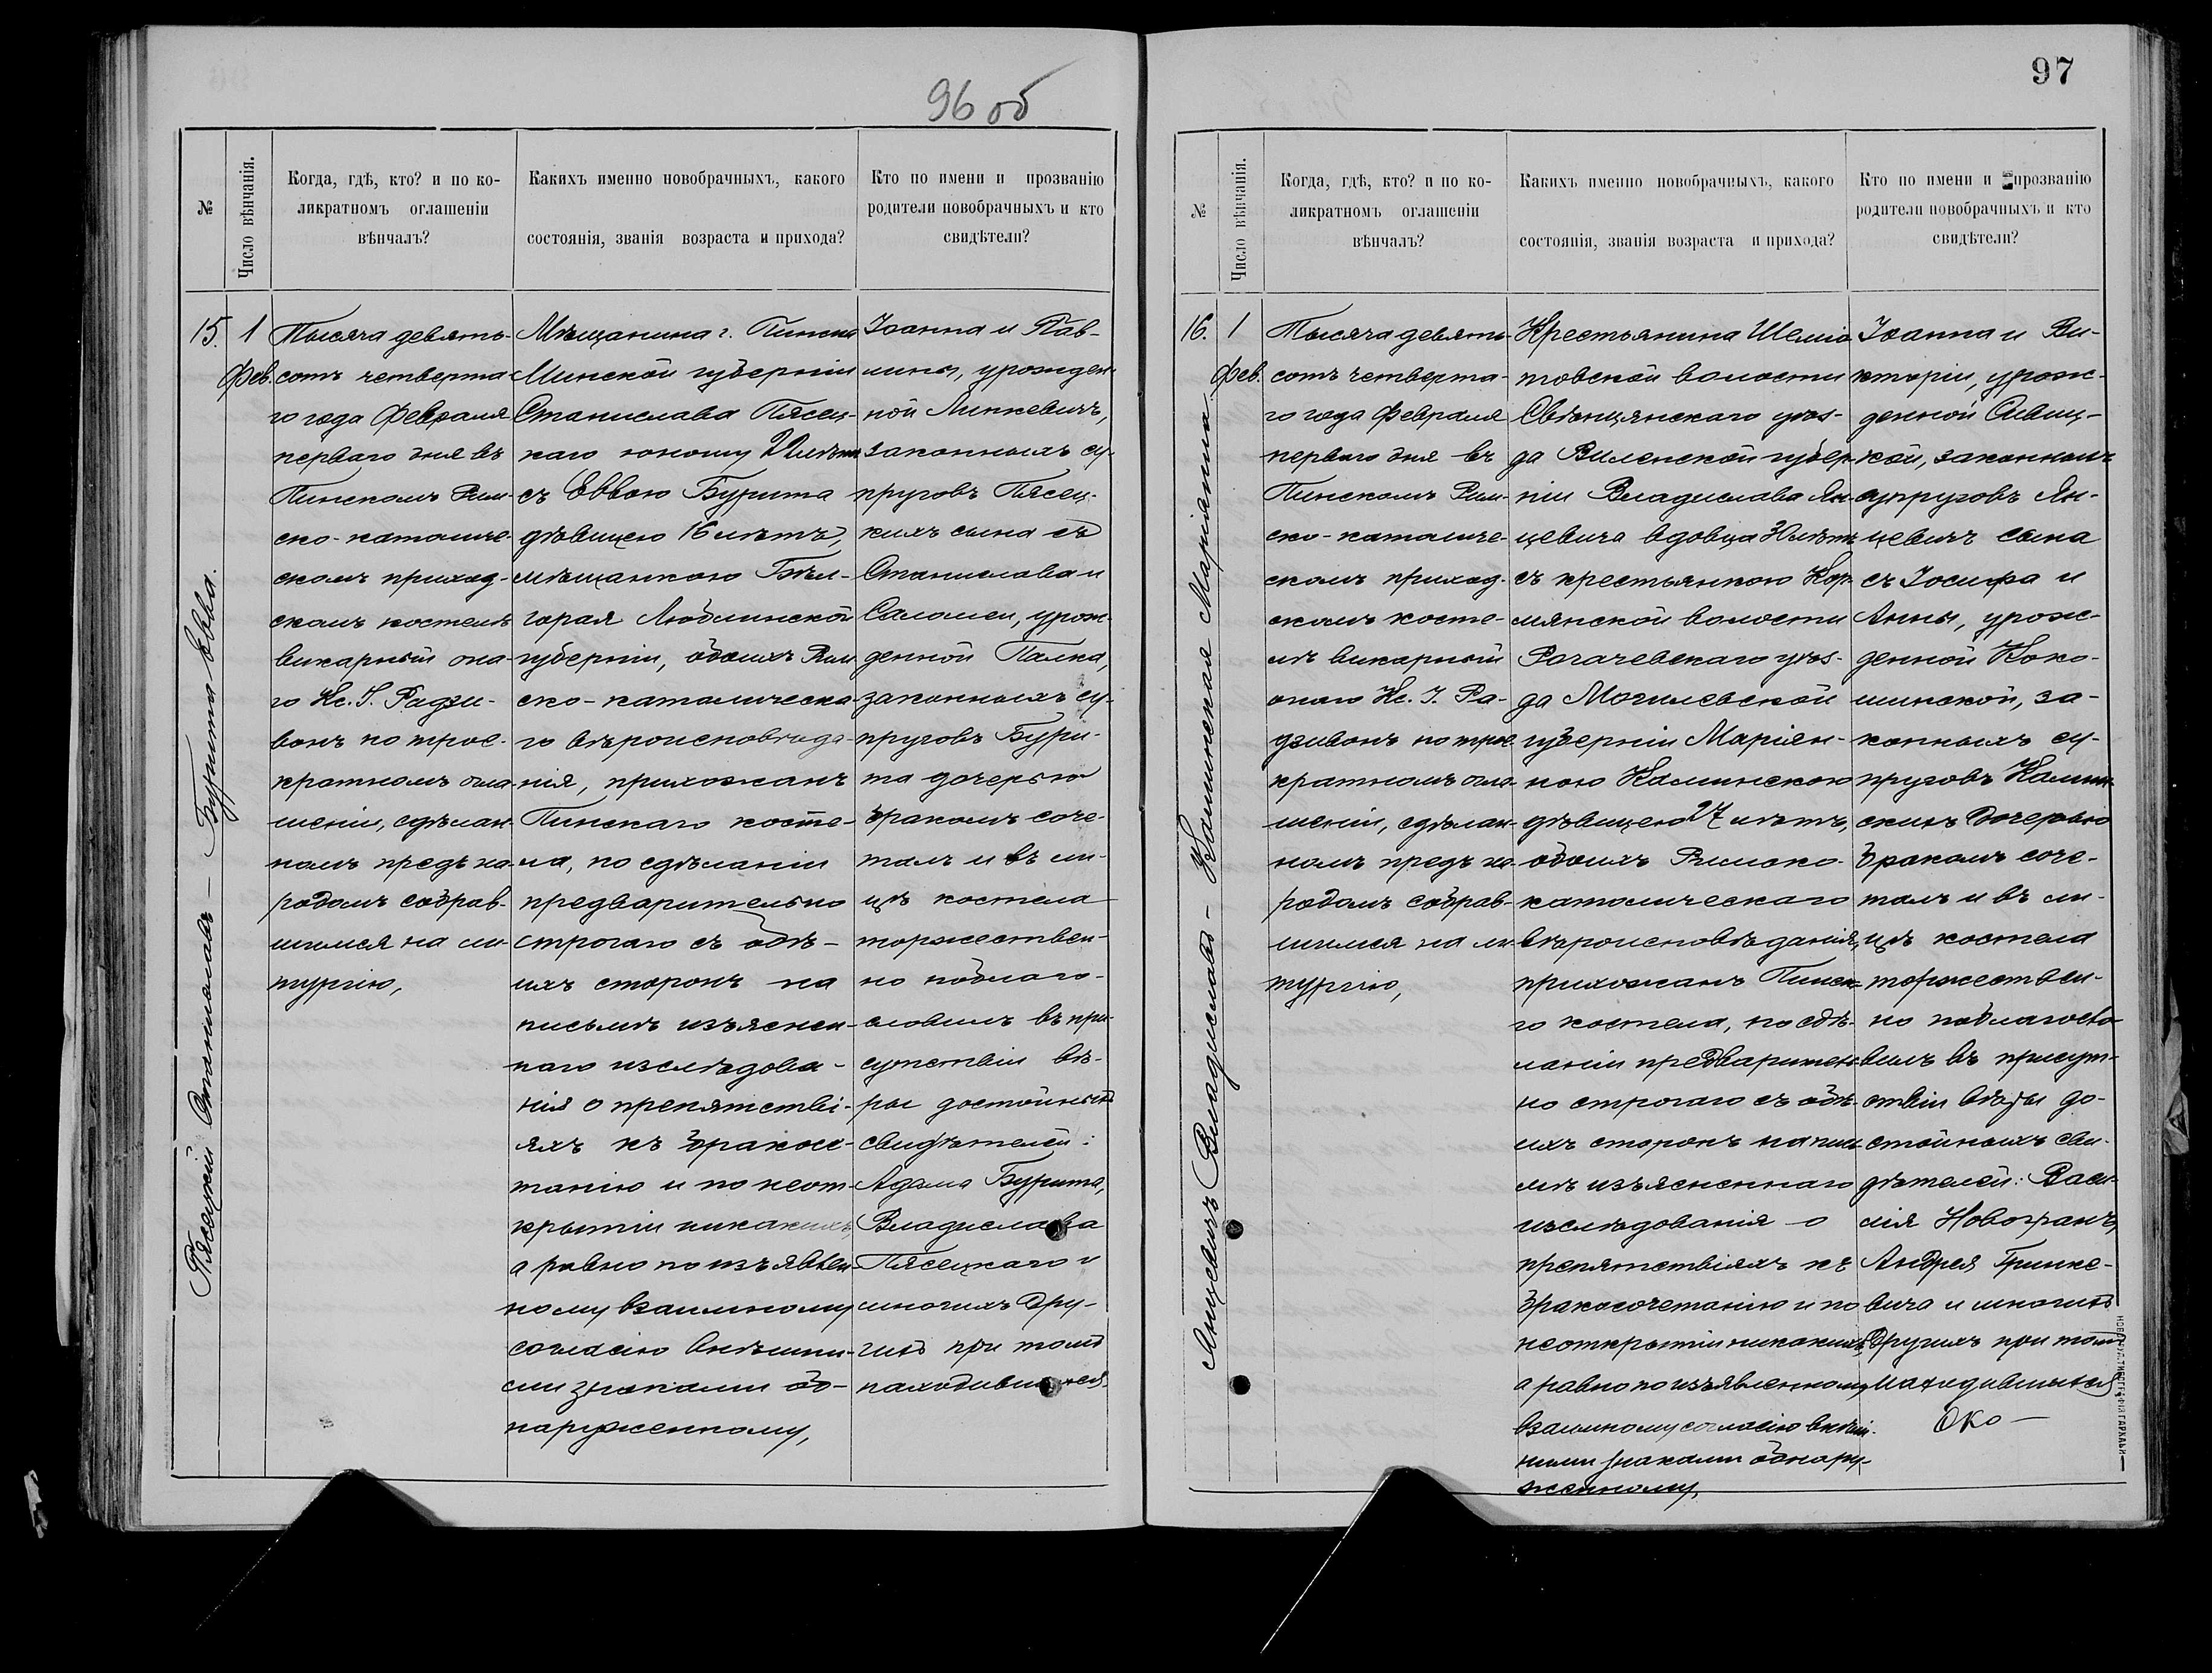 96 об
№
Число вѣнчанія.
Когда, гдѣ, кто? и по ко-
ликратномъ оглашеніи
вѣнчалъ?
Какихъ именно новобрачныхъ, какого
состоянія, званія возраста и прихода?
Кто по имени и прозванію
родители новобрачныхъ и кто
свидѣтели?
Пясецкій Станиславъ – Бурита Евва.
15.
1
Фев.
Тысяча девять-
сотъ четверта-
го года Февраля
перваго дня въ
Пинскомъ Рим-
ско-католиче-
скомъ приход-
скомъ костелѣ
викарный она-
го Кс. І. Радзи-
вонъ по трое-
кратномъ огла-
шеніи, сдѣлан-
номъ предъ на-
родомъ собрав-
шимся на ли-
тургію,
Мѣщанина г. Пинска
Минской губерніи
Станислава Пясец-
каго юношу лѣтъ
съ Еввою Бурита
дѣвицею 16 лѣтъ,
мѣщанкою Бѣл-
горая Люблинской
губерніи, обоихъ Рим
ско-католическа-
го вѣроисповѣда-
нія, прихожанъ
Пинскаго косте-
ла, по сдѣланіи
предварительно
строгаго съ обѣ-
ихъ сторонъ на
письмѣ изъяснен-
наго изслѣдова-
нія о препятстві-
яхъ къ бракосо-
танію и по неот-
крытіи никакихъ,
а равно по изъявлен
ному взаимному
согласію внѣшни-
ми знаками об-
наруженному,
Іоанна и Пав-
лины, урожден-
ной Линкевичъ,
законныхъ су-
пруговъ Пясец-
кихъ сына съ
Станислава и
Саломеи, урож-
денной Палка,
законныхъ су-
пруговъ Бури-
та дочерью
бракомъ соче-
талъ и въ ли-
цѣ костела
торжествен-
но поблаго-
словилъ въ при-
сутствіи вѣ-
ры достойныхъ
свидѣтелей:
Адама Бурита,
Владислава
Пясецкаго и
многихъ дру-
гихъ при томъ
находившихся
97
№
Число вѣнчанія.
Когда, гдѣ, кто? и по ко-
ликратномъ оглашеніи
вѣнчалъ?
Какихъ именно новобрачныхъ, какого
состоянія, званія возраста и прихода?
Кто по имени и прозванію
родители новобрачныхъ и кто
свидѣтели?
Янцевичъ Владиславъ – Калинская Маріянна
16.
1
Фев.
Тысяча девять-
сотъ четверта-
го года Февраля
перваго дня въ
Пинскомъ Рим-
ско-католиче-
скомъ приход-
скомъ косте-
лѣ викарный
онаго Кс. І. Ра-
дзивонъ по трое-
кратномъ огла-
шеніи, сдѣлан-
номъ предъ на-
родомъ собрав-
шимся на ли
тургію,
Крестьянина Шеміо
товской волости
Свѣнцянскаго уѣз-
да Виленской губер-
ніи Владислава Ян-
цевича вдовца лѣтъ
съ крестьянкою Кор-
мянской волости
Рогачевскаго уѣз-
да Могилевской
губерніи Маріян-
ною Калинскою
дѣвицею 27 лѣтъ,
обоихъ Римско-
католическаго
вѣроисповѣданія,
прихожанъ Пинска-
го костела, по сдѣ-
ланіи предваритель
но строгаго съ обѣ-
ихъ сторонъ на пись-
мѣ изъясненнаго
изслѣдованія о
препятствіяхъ къ
бракосочетанію и по
неоткрытіи никакихъ,
а равно по изъявленному
взаимному согласію внѣш-
ними знаками обнару-
женному,
Іоанна и Ви-
кторіи, урож-
денной
кой, законныхъ
супруговъ Ян-
цевичъ сына
съ Іосифа и
Анны, урож-
денной Коко-
шинской, за-
конныхъ су-
пруговъ Калин-
скихъ дочерью
бракомъ соче-
талъ и въ ли-
цѣ костела
торжествен-
но поблагосло-
вилъ въ присут-
ствіи вѣры до-
стойныхъ сви-
дѣтелей: Васи-
лія Новогранъ,
Андрея Гринке-
вича и многихъ
другихъ при томъ
находившихся
Око –